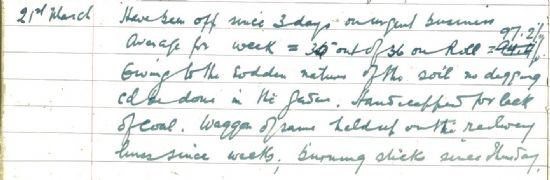 21st March Have been off since 3 days on urgent business
97.2%
Average for week = 35 out of 36 on Roll =
Owing to the sodden nature of the soil no digging
cd be done in the garden. Handicapped for lack
of coal. Waggon of same held up on the railway
lines since weeks, burning sticks since Thursday.